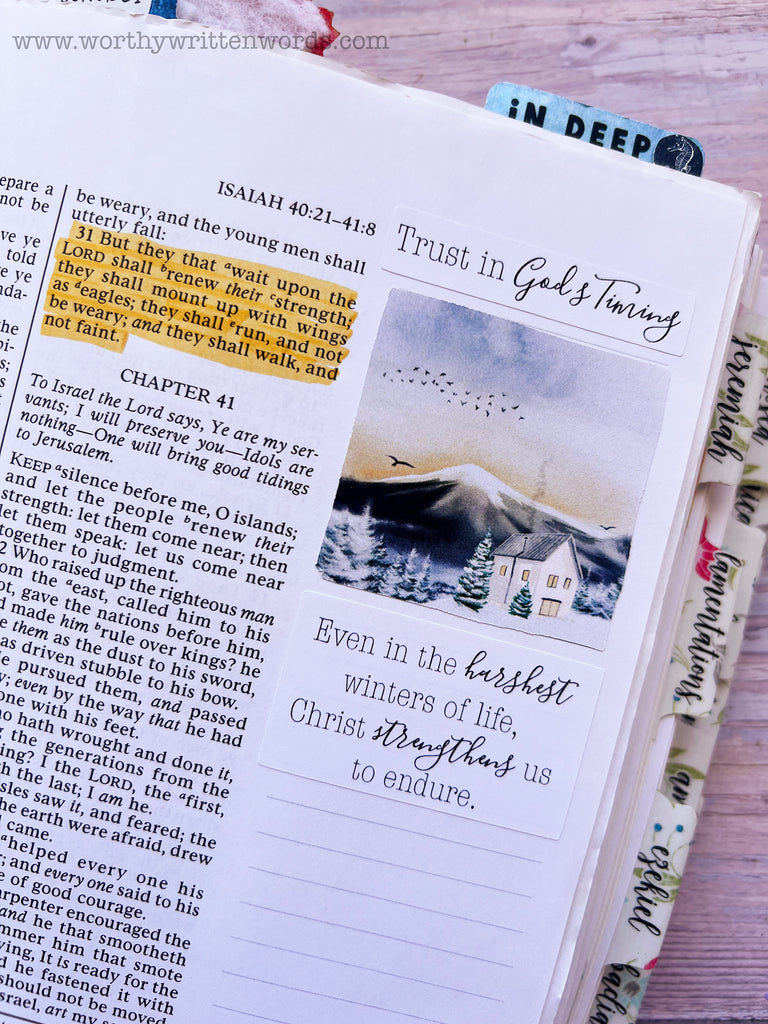 www.worthywrittenwords.com
IN DEEP
ISAIAH 40:21–41:8
epare a
not be
ve ye
told
ve ye
nda-
the
pi-
be weary, and the young men shall
utterly fall:
31 But they that ᵃwait upon the
LORD shall ᵇrenew their ᶜstrength;
they shall mount up with wings
as ᵈeagles; they shall ᵉrun, and not
be weary; and they shall walk, and
not faint.
CHAPTER 41
To Israel the Lord says, Ye are my ser-
vants; I will preserve you—Idols are
nothing—One will bring good tidings
to Jerusalem.
KEEP ᵃsilence before me, O islands;
and let the people ᵇrenew their
strength: let them come near; then
let them speak: let us come near
together to judgment.
2 Who raised up the righteous man
om the ᵃeast, called him to his
ot, gave the nations before him,
d made him ᵇrule over kings? he
e them as the dust to his sword,
as driven stubble to his bow.
e pursued them, and passed
y; even by the way that he had
one with his feet.
ho hath wrought and done it,
ing the generations from the
ing? I the LORD, the ᵃfirst,
th the last; I am he.
sles saw it, and feared; the
he earth were afraid, drew
came.
ᵃhelped every one his
r; and every one said to his
e of good courage.
arpenter encouraged the
and he that smootheth
mmer him that smote
ying, It is ready for the
d he fastened it with
should not be moved
srael, art my
Trust in God's Timing
Even in the harshest
winters of life,
Christ strengthens us
to endure.
jeremiah
lamentations
ezekiel